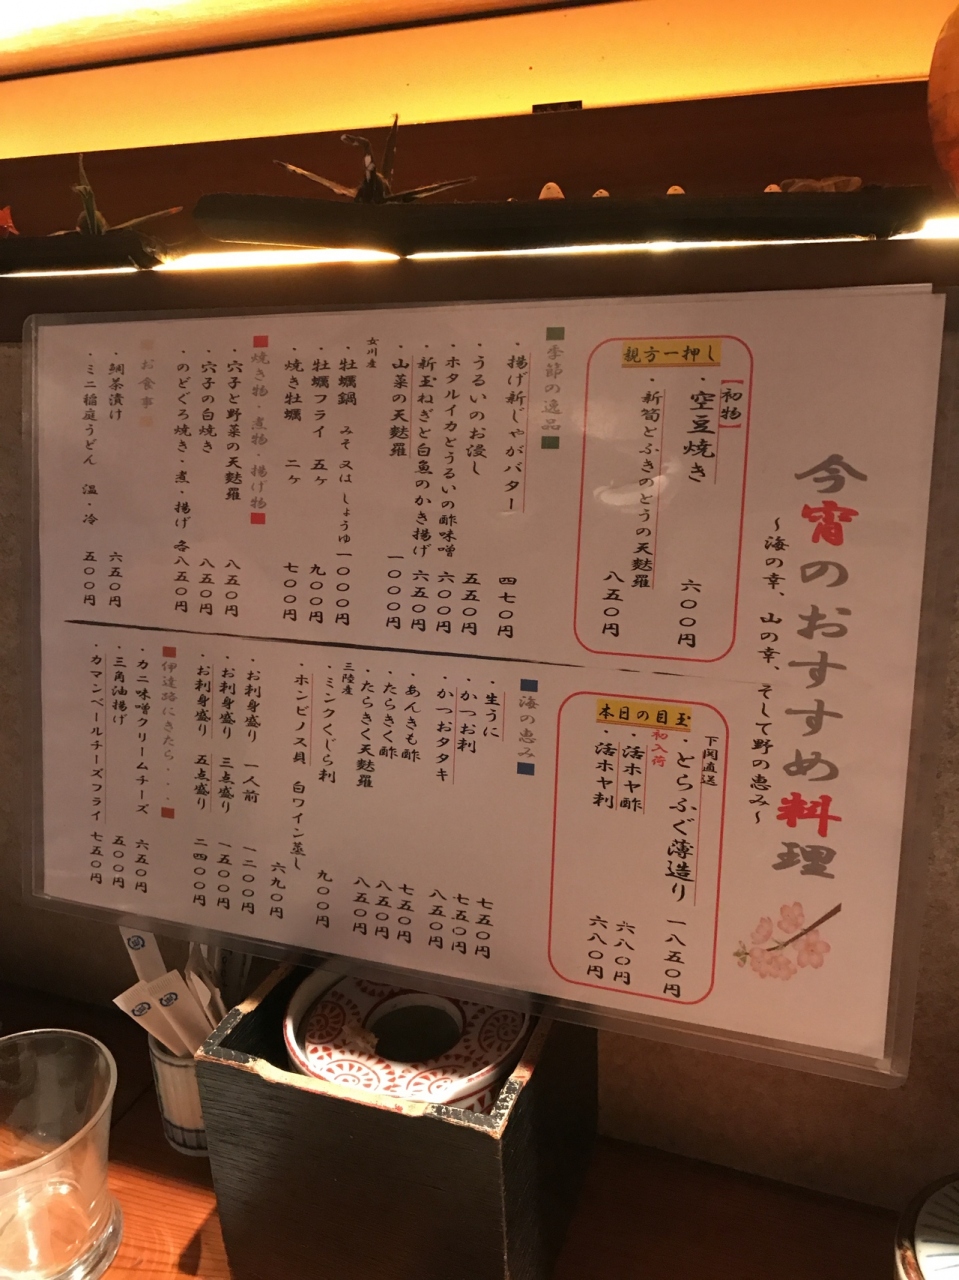 今宵のおすすめ料理
～海の幸、山の幸、そして野の恵み～
親方一押し
【初物】
・空豆焼き 六〇〇円
・新筍とふきのとうの天麩羅 八五〇円
本日の目玉
下関直送
・とらふぐ薄造り 一八五〇円
初入荷
・活ホヤ酢 六八〇円
・活ホヤ刺 六八〇円
■季節の逸品■
・揚げ新じゃがバター 四七〇円
・うるいのお浸し 五五〇円
・ホタルイカとうるいの酢味噌 六〇〇円
・新玉ねぎと白魚のかき揚げ 六五〇円
・山菜の天麩羅 一〇〇〇円
女川産
・牡蠣鍋 みそ又はしょうゆ 一〇〇〇円
・牡蠣フライ 五ヶ 九〇〇円
・焼き牡蠣 二ヶ 七〇〇円
■焼き物・煮物・揚げ物■
・穴子と野菜の天麩羅 八五〇円
・穴子の白焼き 八五〇円
・のどぐろ焼き・煮・揚げ 各八五〇円
■お食事■
・鯛茶漬け 六五〇円
・ミニ稲庭うどん 温・冷 五〇〇円
■海の恵み■
・生うに 七五〇円
・かつお刺 七五〇円
・かつおタタキ 八五〇円
・あんきも酢 七五〇円
・たらきく酢 八五〇円
・たらきく天麩羅 八五〇円
三陸産
・ミンクくじら刺 九〇〇円
・ホンビノス貝 白ワイン蒸し 六九〇円
・お刺身盛り 一人前 一二〇〇円
・お刺身盛り 三点盛り 一五〇〇円
・お刺身盛り 五点盛り 二四〇〇円
■伊達路にきたら・・・■
・カニ味噌クリームチーズ 六五〇円
・三角油揚げ 五〇〇円
・カマンベールチーズフライ 七五〇円